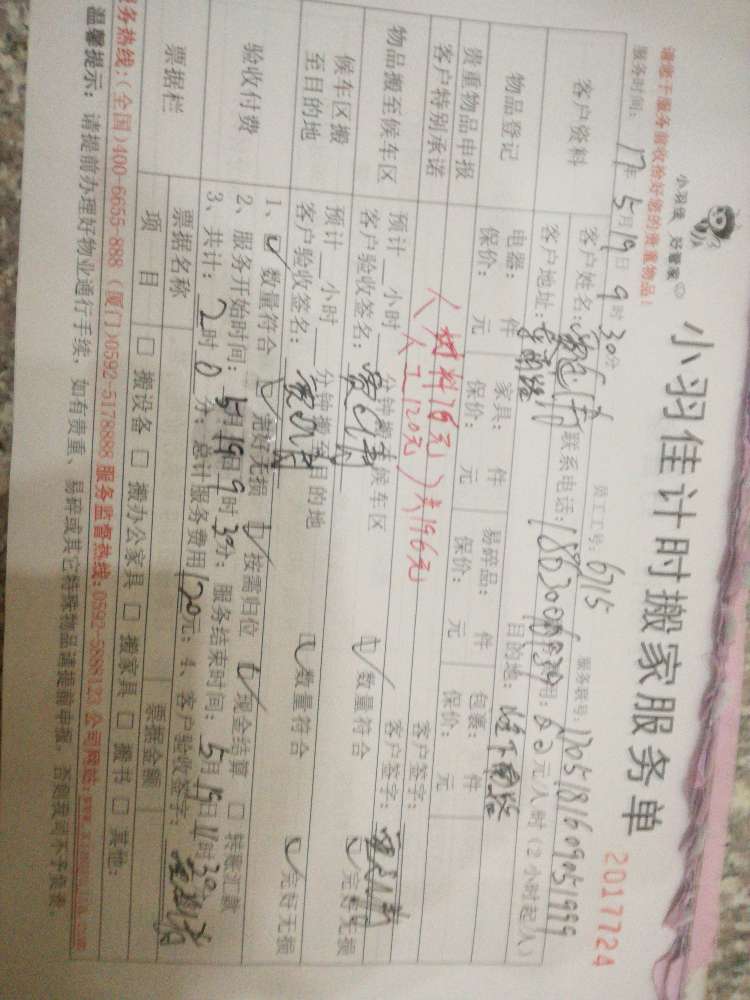 小羽佳计时搬家服务单
小羽佳 好管家
2017724
请您于服务前收拾好您的贵重物品!
员工工号: 6715
服务时间: 17年5月19日9时30分
服务联号:
客户资料
客户姓名:
联系电话:
费用: 60元/人时(2小时起/人)
客户地址:
目的地:
物品登记
电器: 件 家具: 件 易碎品: 件 包裹: 件
保价: 元 保价: 元 保价: 元 保价: 元
贵重物品申报
客户特别承诺
材料76元
人工120元
共196元
客户签字:
物品搬至候车区
预计 小时 分钟搬至候车区
客户验收签名:
数量符合
完好无损
客户签字:
候车区搬
至目的地
预计 小时 分钟搬至目的地
客户验收签名:
数量符合
完好无损
验收付费
1、数量符合 完好无损 按需归位 现金结算 □ 转账汇款
2、服务开始时间: 5月19日9时30分; 服务结束时间: 5月19日11时30
3、共计: 2时0分; 总计服务费用120元; 4、客户验收签字:
票据栏
票据名称
票据金额
项 目
□ 搬设备 □ 搬办公家具 □ 搬家具 □ 搬书 □ 其他:
服务热线:(全国)400-6655-888 (厦门)0592-5178888 服务监督热线:0592-5888123 公司网站:
温馨提示: 请提前办理好物业通行手续, 如有贵重、易碎或其它特殊物品请提前申报。 否则我司不予负责。